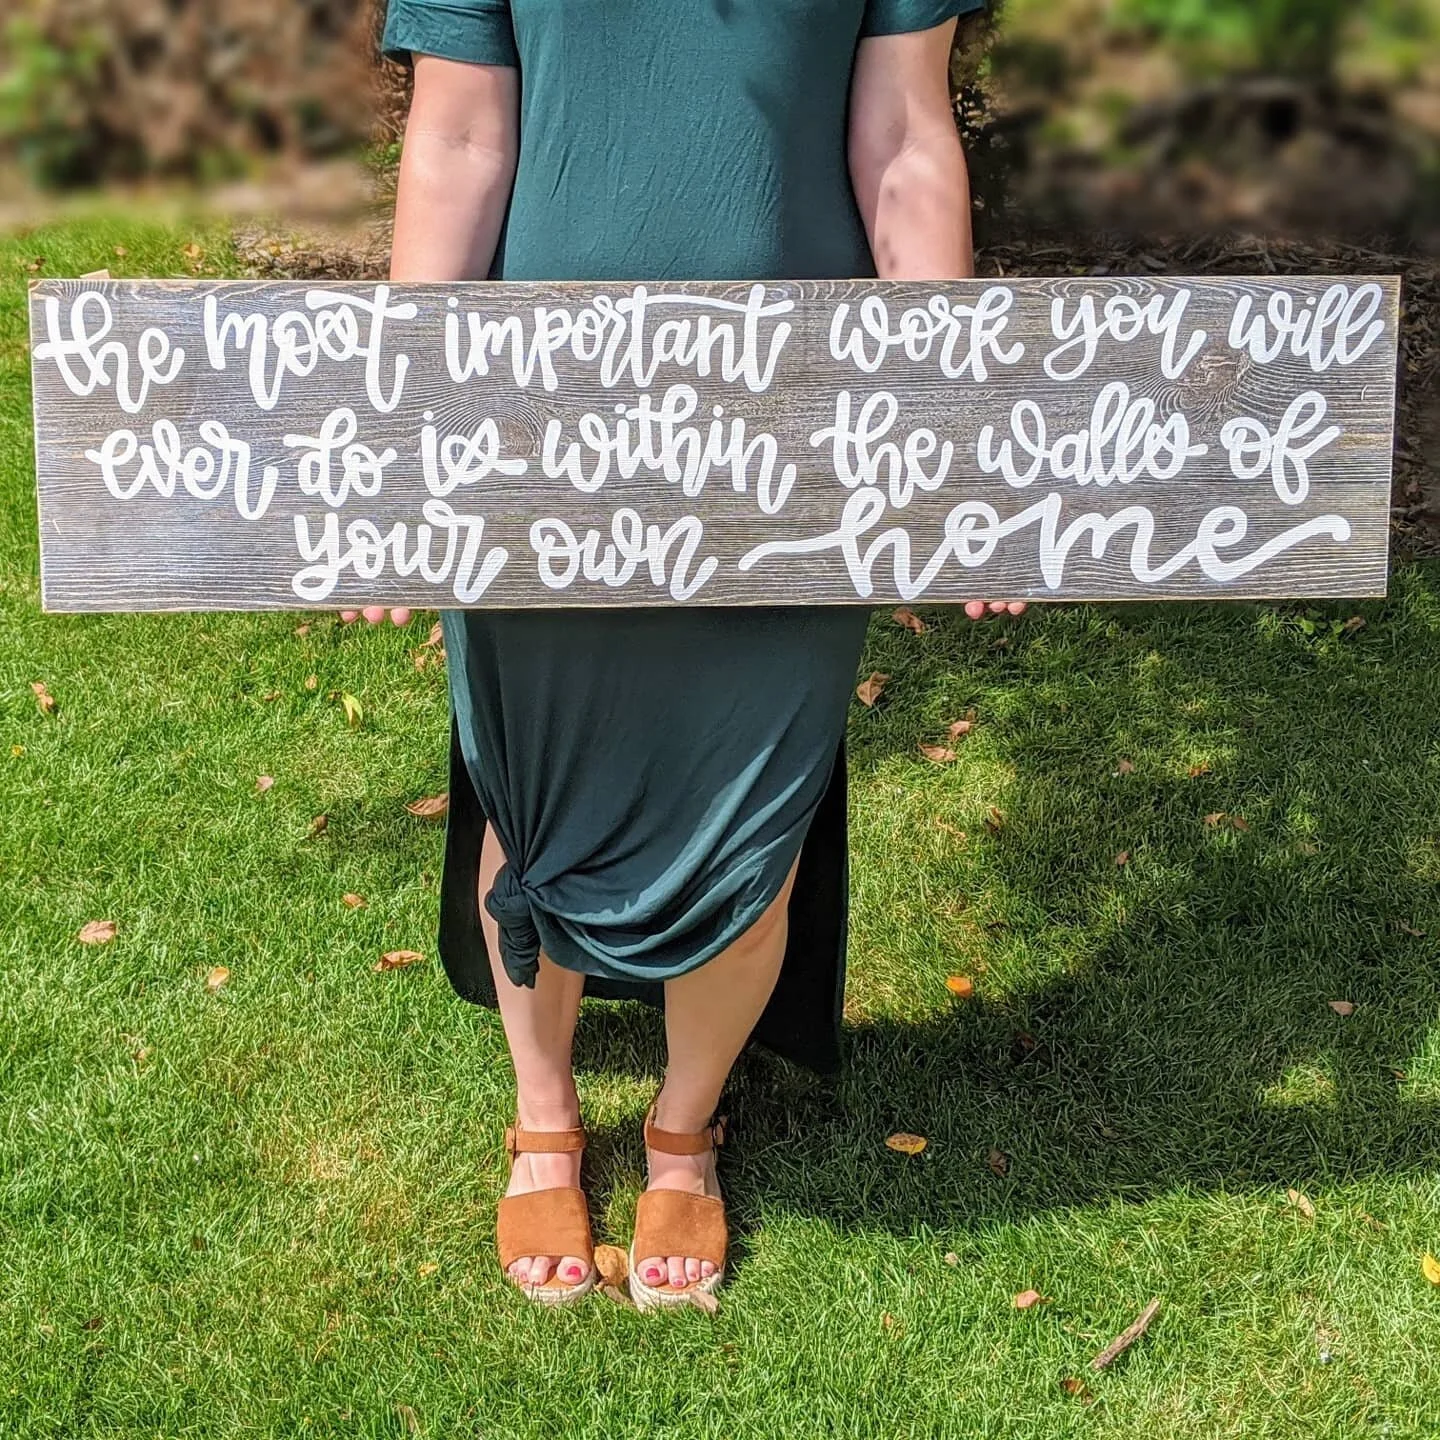 the most important work you will
ever do is within the walls of
your own home